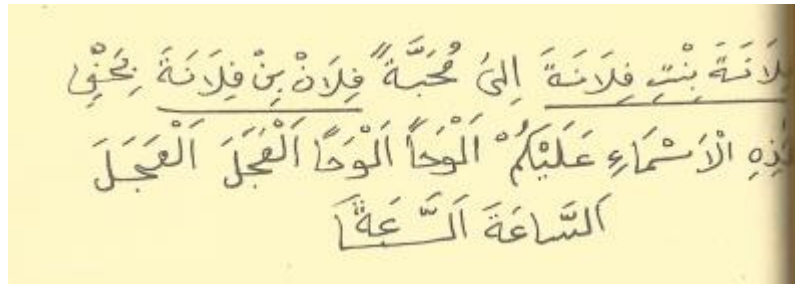 فِلَانَةَ بِنْتِ فِلَانَةَ اِلىَ مُحَبَّةً فِلَانْ بِنْ فِلَانَةَ بِحَقِّ
هٰذِهِ الْاَسْمَاءِ عَلَيْكُمْ اَلْوَحاً اَلْوَحًا اَلْعَجَلَ اَلْعَجَلَ
اَلسَّاعَةَ اَلسَّاعَةَ